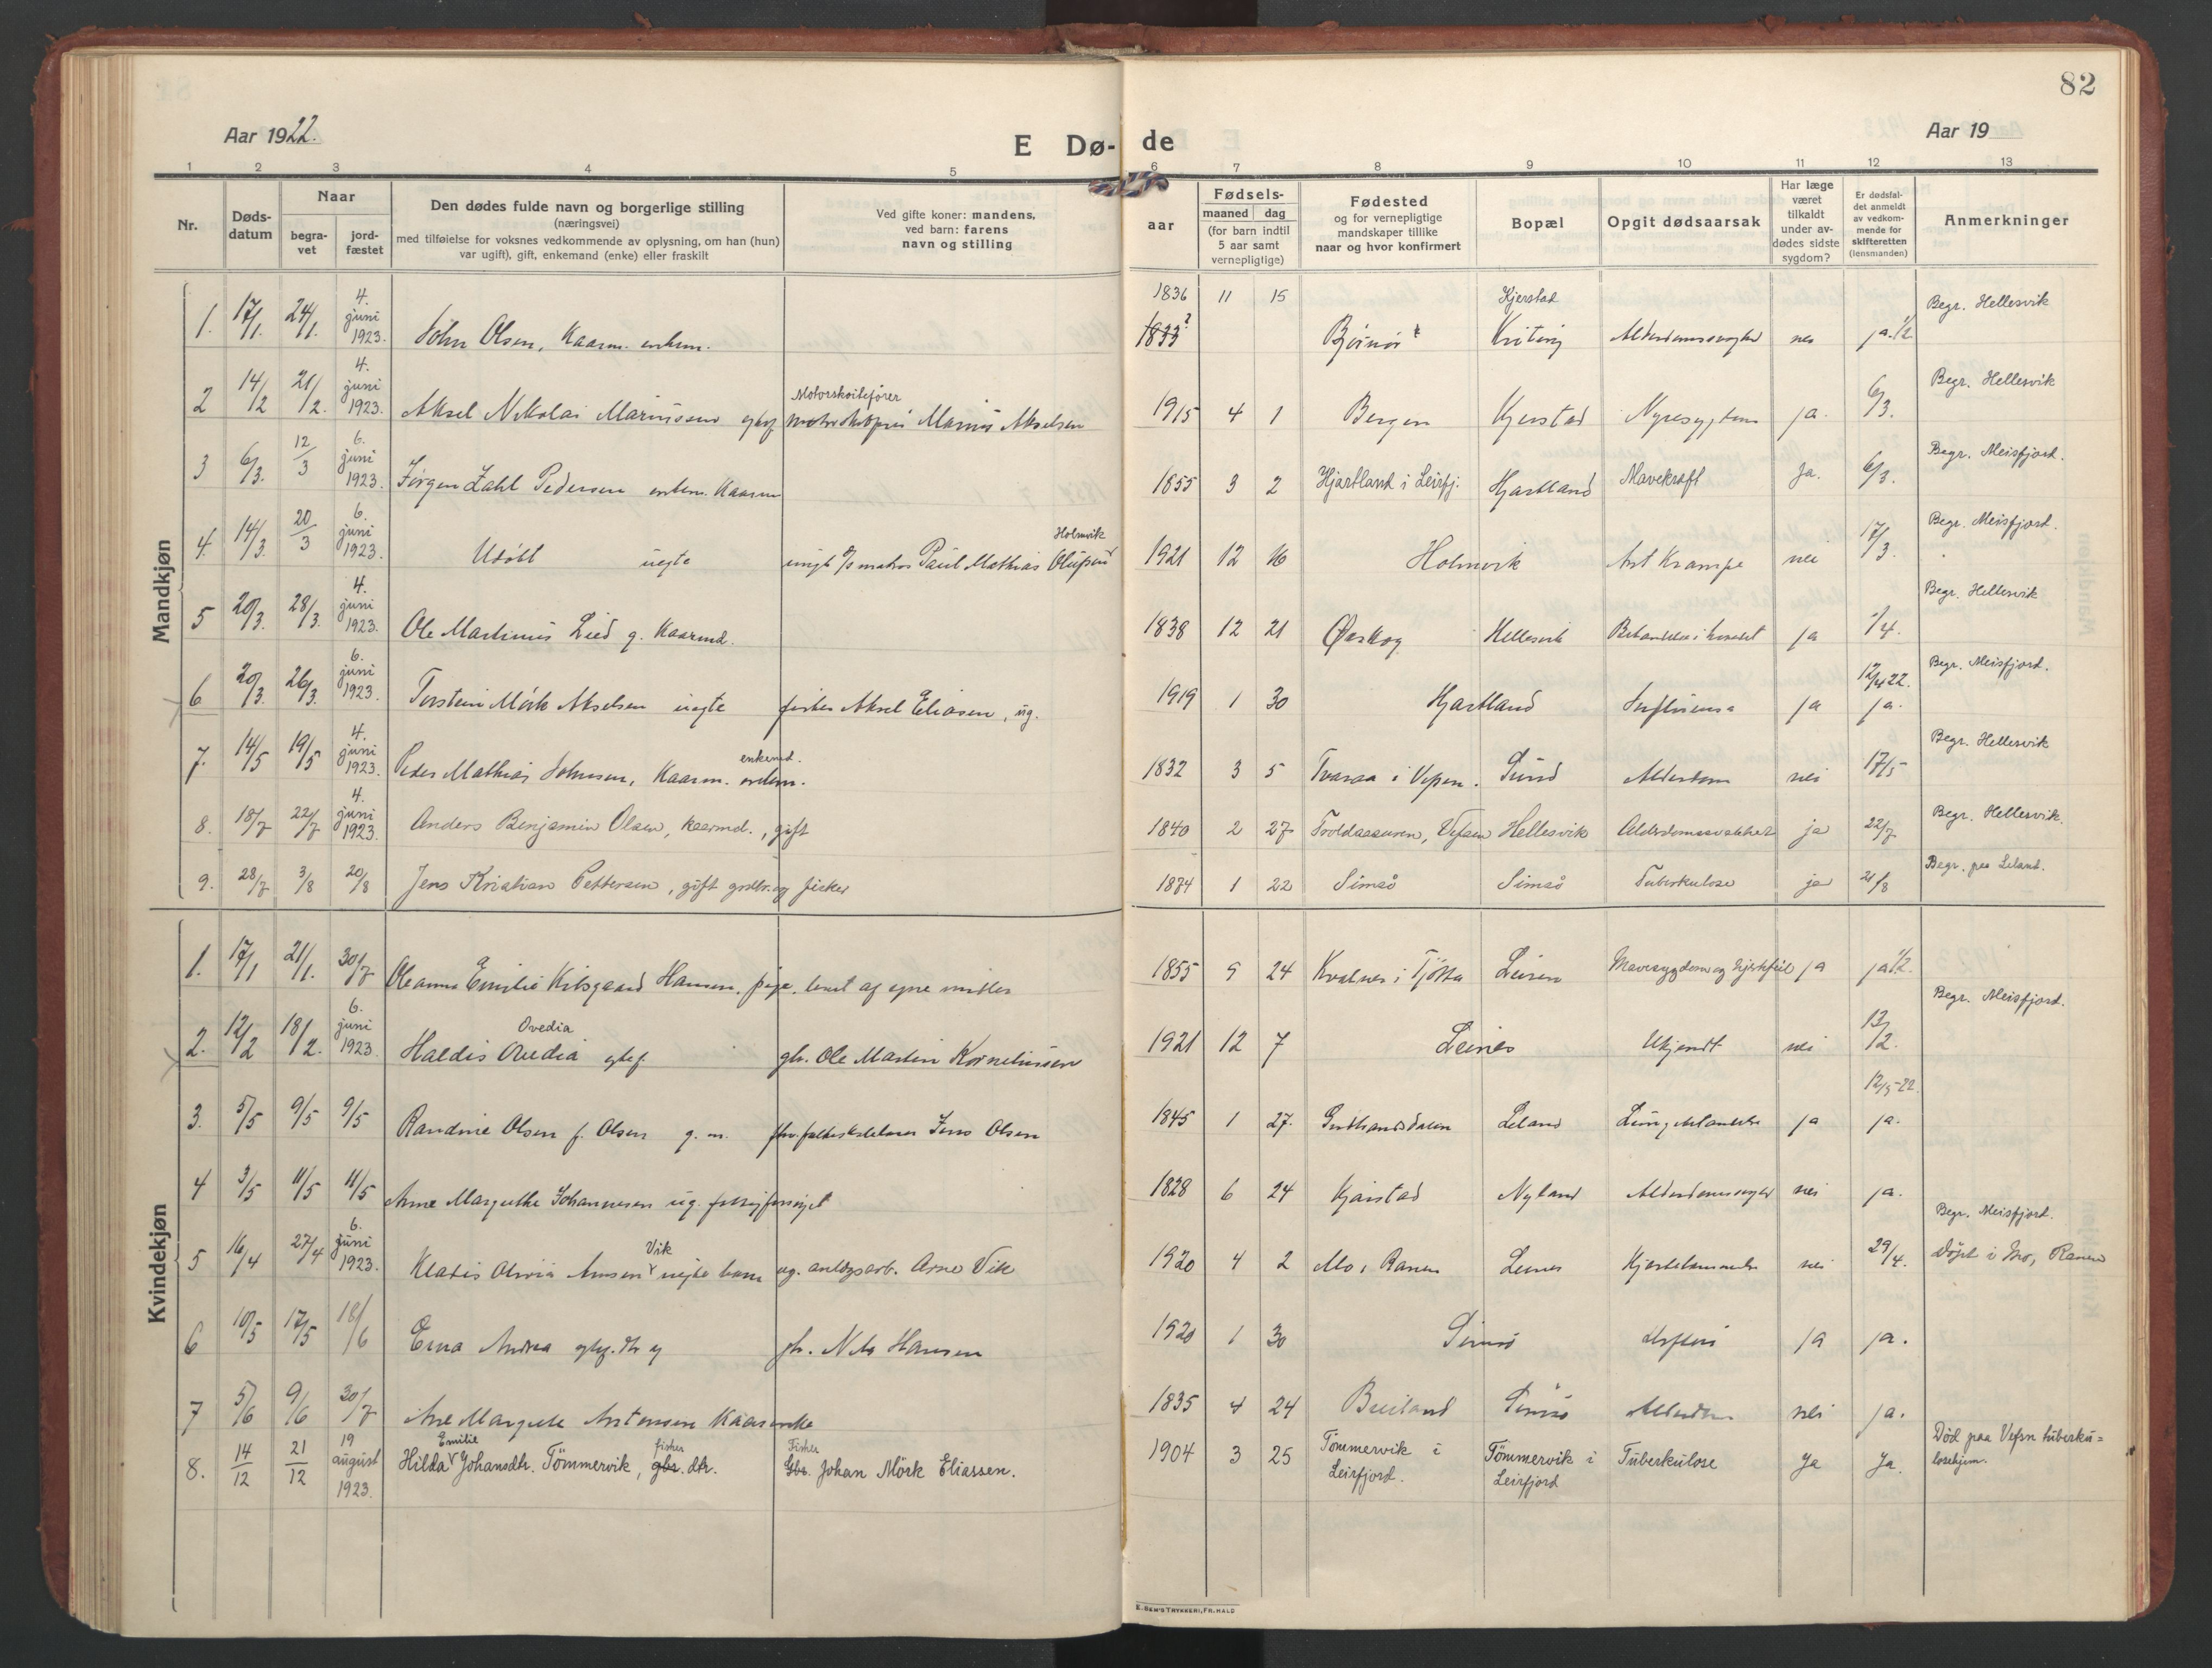 82
Aar 1922.
E Dø-
de
Aar 19
1 2 3 4 5 6 7 8 9 10 11 12 13
Nr.
Døds-
datum
Naar
begra-
vet
jord-
fæstet
Den dødes fulde navn og borgerlige stilling
(næringsvei)
med tilføielse for voksnes vedkommende av oplysning, om han (hun)
var ugift), gift, enkemand (enke) eller fraskilt
Ved gifte koner: mandens,
ved barn: farens
navn og stilling
aar
Fødsels-
maaned dag
(for barn indtil
5 aar samt
vernepligtige)
Fødested
og for vernepligtige
mandskaper tillike
naar og hvor konfirmert
Bopæl
Opgit dødsaarsak
Har læge
været
tilkaldt
under av-
dødes sidste
sygdom?
Er dødsfal-
det anmeldt
av vedkom-
mende for
skifteretten
(lensmanden)
Anmerkninger
Mandkjøn
1. 17/1. 24/1. 4. juni 1923. John Olsen, Kaarm. enkem. 1836 11 15 1833? Bjørnør Kjerstad nei ja. 1/2 Begr. Hellesvik
2 14/2 21/2. 4. juni 1923. Aksel Nikolai Mariussen Motorskøitefører Marius Akselsen 1915 4 1 Bergen Kjerstad Nyresygdom ja. 6/3. Begr. Hellesvik
3 6/3. 12/3 6. juni 1923. Jørgen Zahl Pedersen enkem. Kaarm 1855 3 2 Hjartland i Leirfj. Hjartland Mavekræft Ja. 6/3. Begr. Meisfjord.
4. 14/3. 20/3 6. juni 1923. Udøbt uegte matros Paul Mathias Olufsen Holmvik 1921 12 16 Holmvik Krampe nei 17/3. Begr. Meisfjord.
5 20/3. 28/3. 4. juni 1923. Ole Martinus Lied g. Kaarmd. 1838 12 21 Ørskog Hellesvik ja 1/4. Begr. Hellesvik
6. 20/3. 26/3. 6. juni 1923. Torstein Mørk Akselsen uegte fisker Aksel Eliasen, ug. 1919 1 30 Hjartland Influensa ja 12/4 22. ja. Begr. Meisfjord.
7. 14/5 19/5 4. juni 1923. Peder Mathias Johnsen, Kaarm. enkemd. 1832 3 5 Tvaraa i Vefsn. Sund Alderdom nei 17/5 Begr. Hellesvik
8. 18/7 22/7 4. juni 1923. Anders Benjamin Olsen, kaarmd., gift 1840 2 27 Troldaasuren, Vefsen Hellesvik Alderdomssvakhet ja 22/7 Begr. Hellesvik.
9. 28/7 3/8 20/8 Jens Kristian Pettersen, gift grdbr. og fisker 1874 1 22 Simsø Simsø Tuberkulose ja 21/8 Begr. paa Leland.
Kvindekjøn
1. 17/1 21/1. 30/7 Oleanna Emilie Kilsgaard Hansen, pige, levet af egne midler 1855 9 24 Kvalnes i Tjøtta Leiren Mavesygdom og hjertefeil ja ja 1/2.
2. 12/2 18/2. 6. juni 1923. Haldis Ovedia gbr. Ole Martin Korneliussen 1921 12 7 Leines Ukjendt nei 13/2. Begr. Meisfjord.
3. 5/5 9/5 9/5 Randine Olsen f. Olsen g. m. Jens Olsen 1845 1 27. Gudbrandsdalen Leland ja 12/5-22. ja.
4 3/5 11/5 11/5 Anne Margrethe Johannesen ug. 1828 6 24 Kjærstad Nyland nei ja.
5 16/4 27/4 6. juni 1923. Vik uegte barn ug. anlægsarb. Arne Vik 1920 4 2 Mo i Ranen Leines nei 29/4. Begr. Meisfjord. Døpt i Mo, Ranen
6 10/5 17/5 18/6 Erna Andrea Hansen 1920 1 30 Simsø ja ja.
7 5/6 9/6 30/7 Ane Margrete Antonsen Kaarenke 1835 4 24 Breiland Simsø Alderdom nei ja.
8. 14/12 21/12 19 august 1923. Hilda Emilie Johansdtr. Tømmervik, fisker gbr. dtr. Fisker Gbr. Johan Mørk Eliassen. 1904 3 25 Tømmervik i Leirfjord. Tømmervik i Leirfjord Tuberkulose Ja Ja. Død paa Vefsn tuberku=
losehjem.
E. SEM'S TRYKKERI, FR. HALD